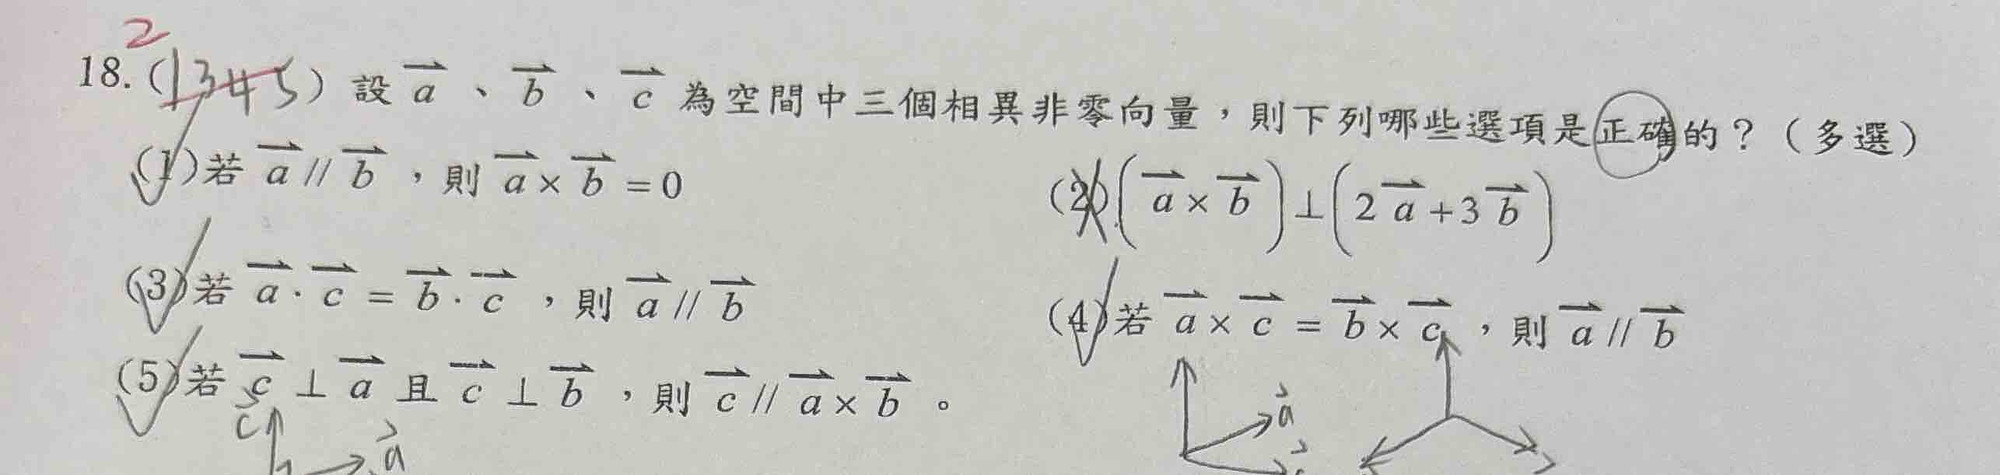 2
18.(1345)設 a⃗、b⃗、c⃗ 為空間中三個相異非零向量，則下列哪些選項是正確的？（多選）
(1)若 a⃗ // b⃗，則 a⃗ × b⃗ = 0
(2)(a⃗ × b⃗) ⊥ (2a⃗ + 3b⃗)
(3)若 a⃗ · c⃗ = b⃗ · c⃗，則 a⃗ // b⃗
(4)若 a⃗ × c⃗ = b⃗ × c⃗，則 a⃗ // b⃗
(5)若 c⃗ ⊥ a⃗ 且 c⃗ ⊥ b⃗，則 c⃗ // a⃗ × b⃗。
c⃗
a⃗
a⃗